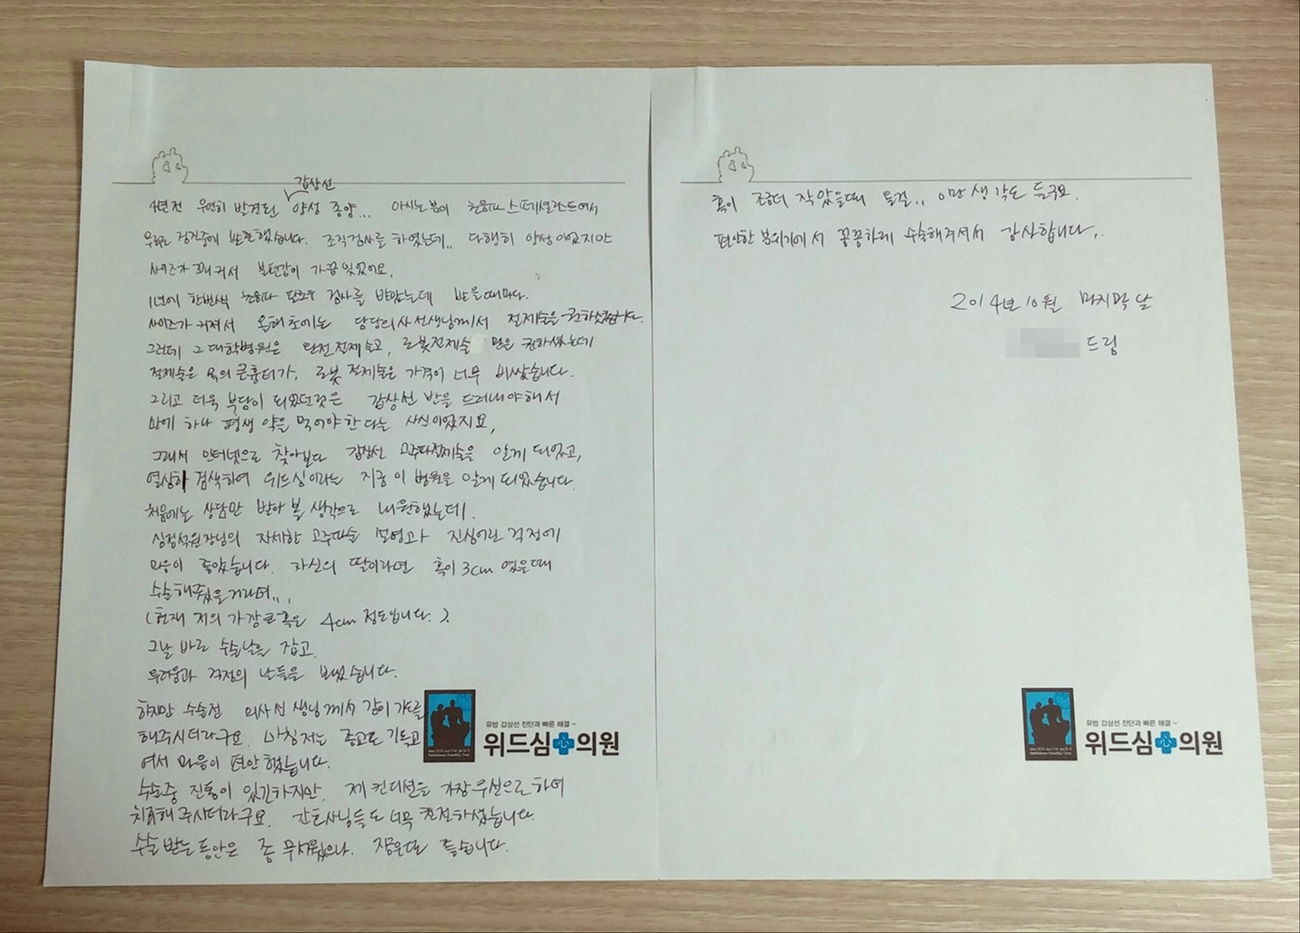 갑상선
4년전 우연히 발견된 양성 종양... 아시는분이 초음파 스페셜리스트여서
우연히 검진중에 발견했습니다. 조직검사를 하였는데.. 다행히 양성이였지만
사이즈가 크기 커서 불편감이 가끔 있었어요.
1년에 한번씩 초음파 검사를 받았는데 받을때마다.
사이즈가 커져서 올해초에는 담당의사선생님께서 절제술을 권하셨습니다.
그런데 그 대학병원은 완전절제술고, 로봇절제술 만은 권하셨는데
절제술은 목의 큰흉터가, 로봇 절제술은 가격이 너무 비쌌습니다.
그리고 더욱 부담이 되었던것은 갑상선 반을 드러내야해서
만에 하나 평생 약을 먹어야한다는 사실이였지요,
그래서 인터넷으로 찾아보다 갑상선 고주파절제술을 알게 되었고,
열심히 검색하여 위드심이라는 지금 이 병원을 알게 되었습니다.
처음에는 상담만 받아 볼 생각으로 내원했는데.
심정석원장님의 자세한 고주파술 설명과 진심어린 걱정에
마음이 좋았습니다. 자신의 딸이라면 혹이 3cm 였을때
수술해줬을거라며..,
(현재 저의 가장 큰 혹은 4cm 정도입니다.)
그날 바로 수술날을 잡고.
두려움과 걱정의 날들을 보냈습니다.
하지만 수술전 의사선생님께서 같이 기도를
해주시더라구요. 마침 저는 종교도 기독교
여서 마음이 편안했습니다.
수술중 진통이 있긴하지만. 제 컨디션을 가장 우선으로 하여
치료해 주시더라구요. 간호사님들도 너무 친절하셨습니다.
수술 받는 동안은 좀 무서웠으나. 지금은 좋습니다.
유방 갑상선 진단과 빠른 해결 -
위드심의원
혹이 조금더 작았을때 올걸.., 이만 생각도 듭구요.
편안한 분위기에서 꼼꼼하게 수술해주셔서 감사합니다..
2014년 10월 마지막 날
드림
유방 갑상선 진단과 빠른 해결 -
위드심의원